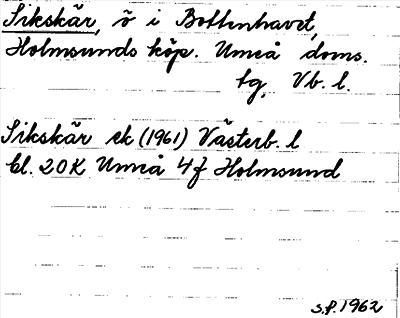 Sikskär, ö i Bottenhavet,
Holmsunds köp. Umeå doms.
tg, Vb. l.
Sikskär ek (1961) Västerb. l
bl. 20K Umeå 4f Holmsund
s.f. 1962